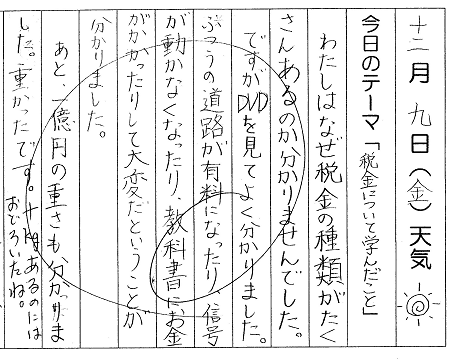 十二月九日(金)天気
今日のテーマ「税金について学んだこと」
わたしはなぜ税金の種類がたく
さんあるのか分かりませんでした。
ですがDVDを見てよく分かりました。
ふつうの道路が有料になったり、信号
が動かなくなったり、教科書にお金
がかかったりして大変だということが
分かりました。
あと、一億円の重さも分かりま
した。重かったです。十kgあるのには
おどろいたね。